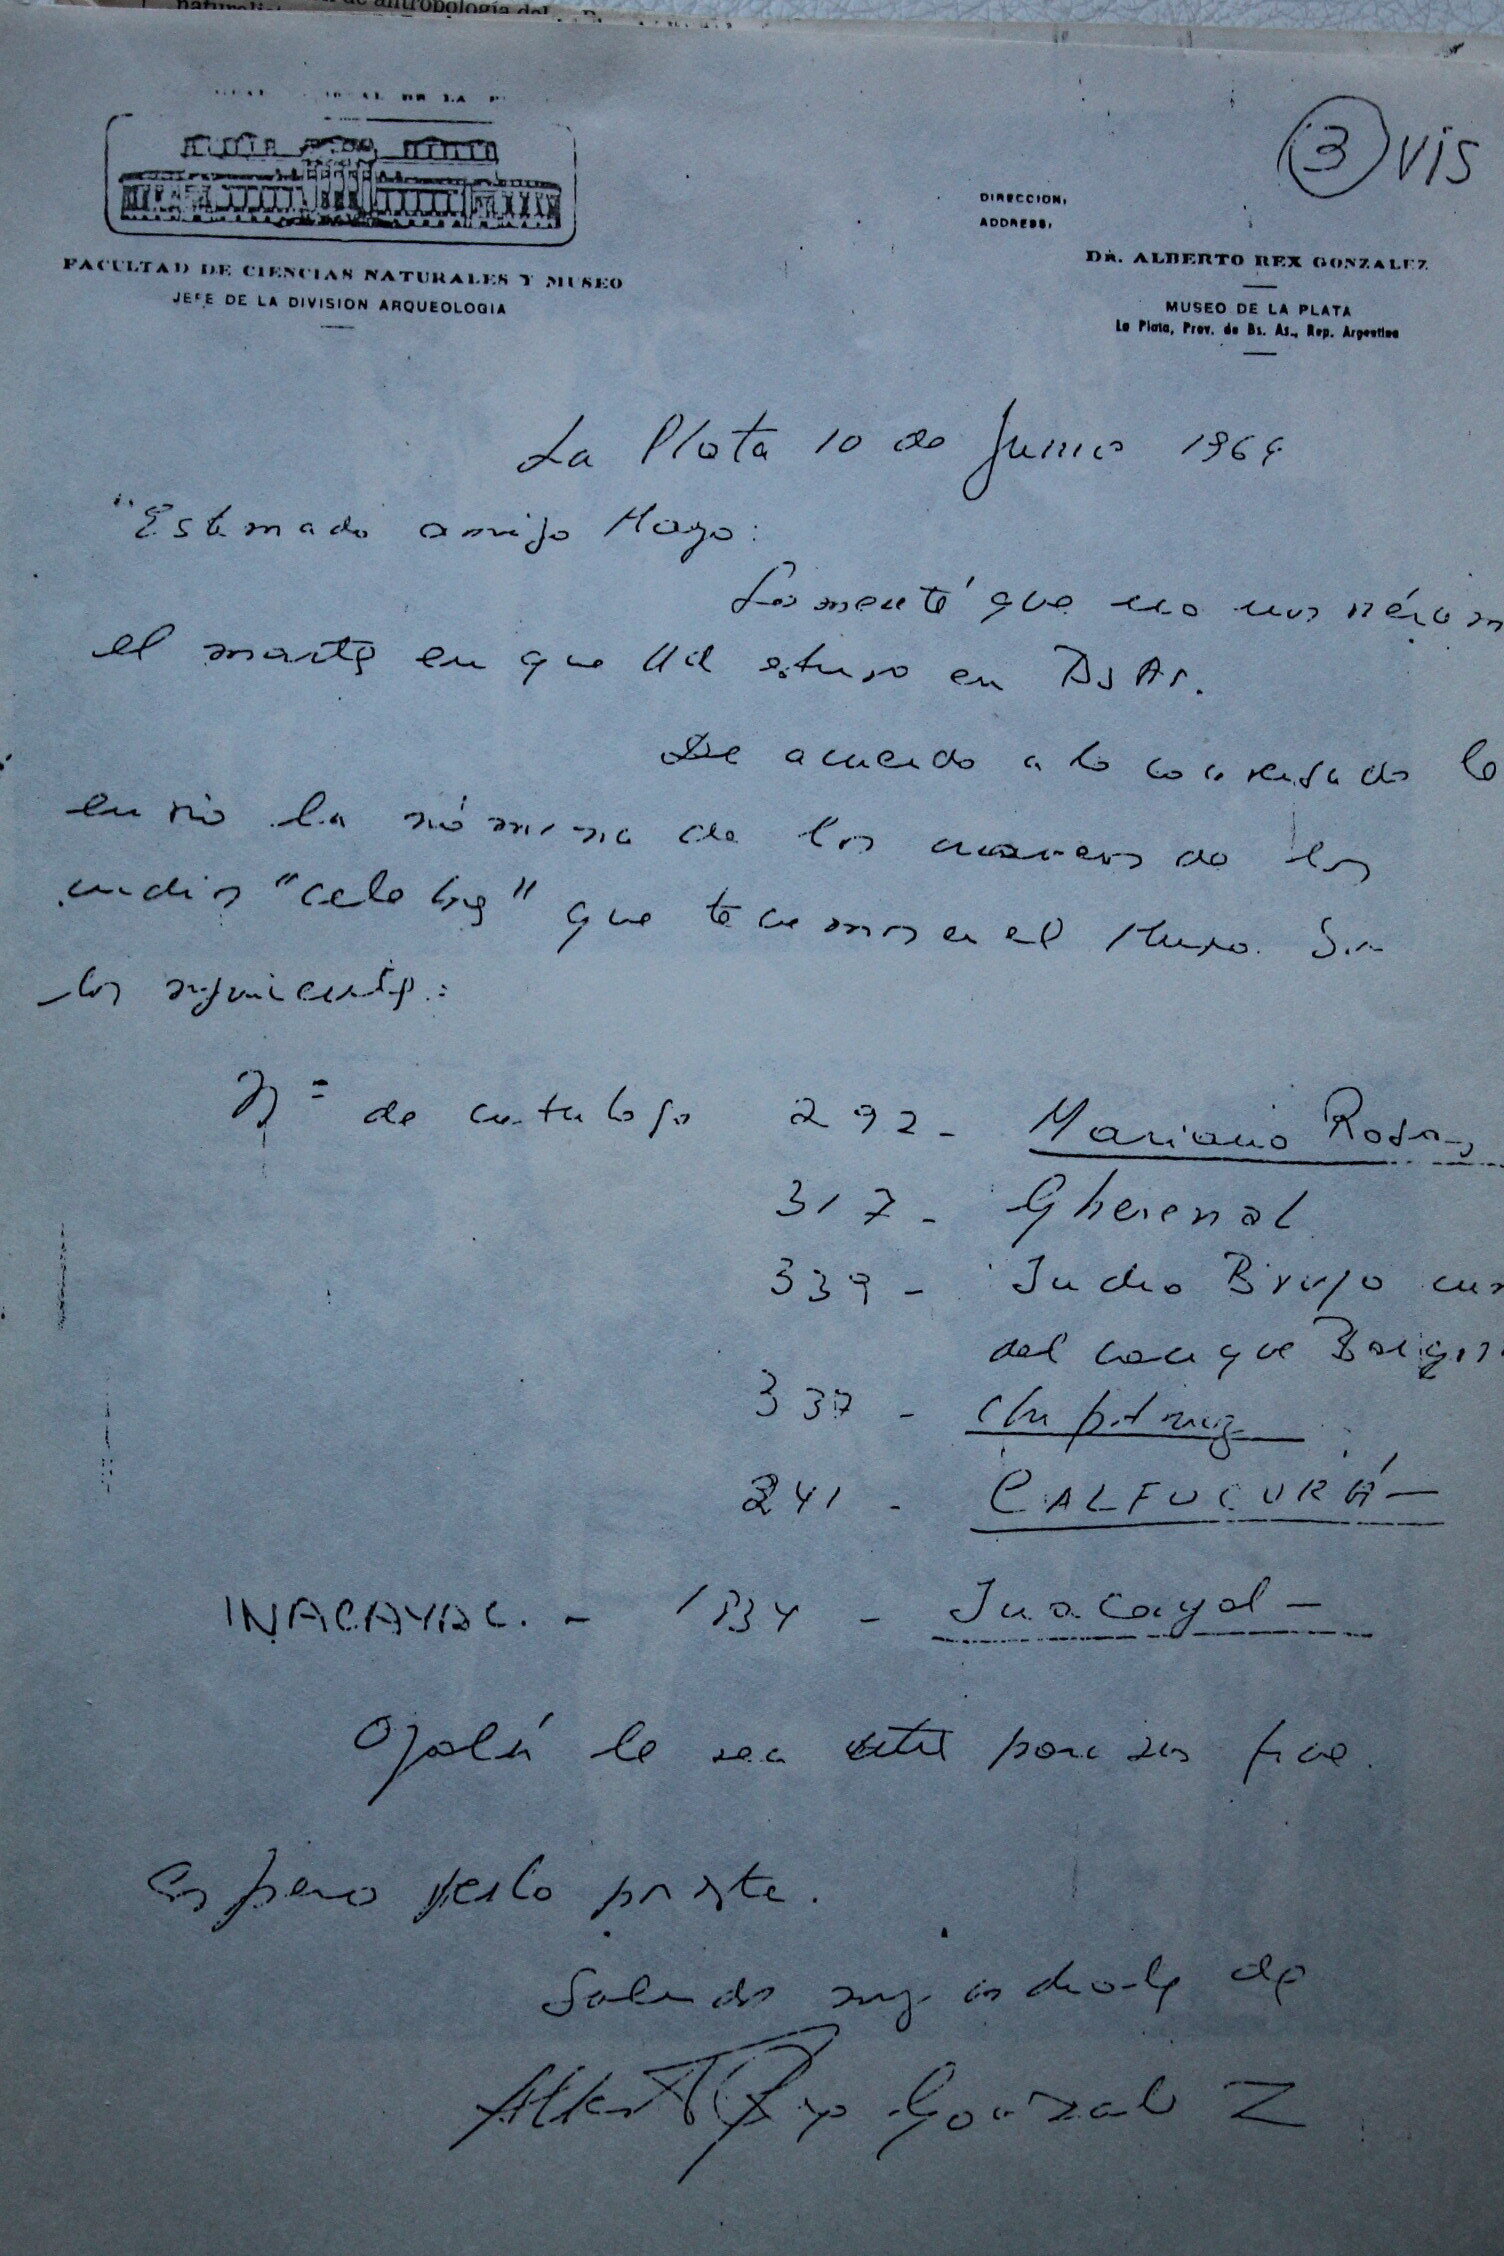 naturalis
de antropología del
DE LA P
3 VIS
DIRECCION,
ADDRESS,
FACULTAD DE CIENCIAS NATURALES Y MUSEO
JEFE DE LA DIVISION ARQUEOLOGIA
DR. ALBERTO REX GONZALEZ
MUSEO DE LA PLATA
La Plata, Prov. de Bs. As., Rep. Argentina
La Plata 10 de Junio 1964
"Estimado amigo Mayo:
Lamenté que no nos viéram
el martes en que Ud estuvo en Bs As.
De acuerdo a lo conversado le
envio la nómina de los craneos de los
indios "celebres" que tenemos en el Museo. Son
los siguientes:
Nº de catalogo 292 - Mariano Rosas
317 - Gherenal
339 - Indio Brujo
del cacique
337 - Chipitruz
241 - CALFUCURÁ -
INACAYAL. - 1834 - Inacayal -
Ojalá le sea util para sus fines.
Espero verlo pronto.
Saludos muy cordiales de
Alberto Rex Gonzalez